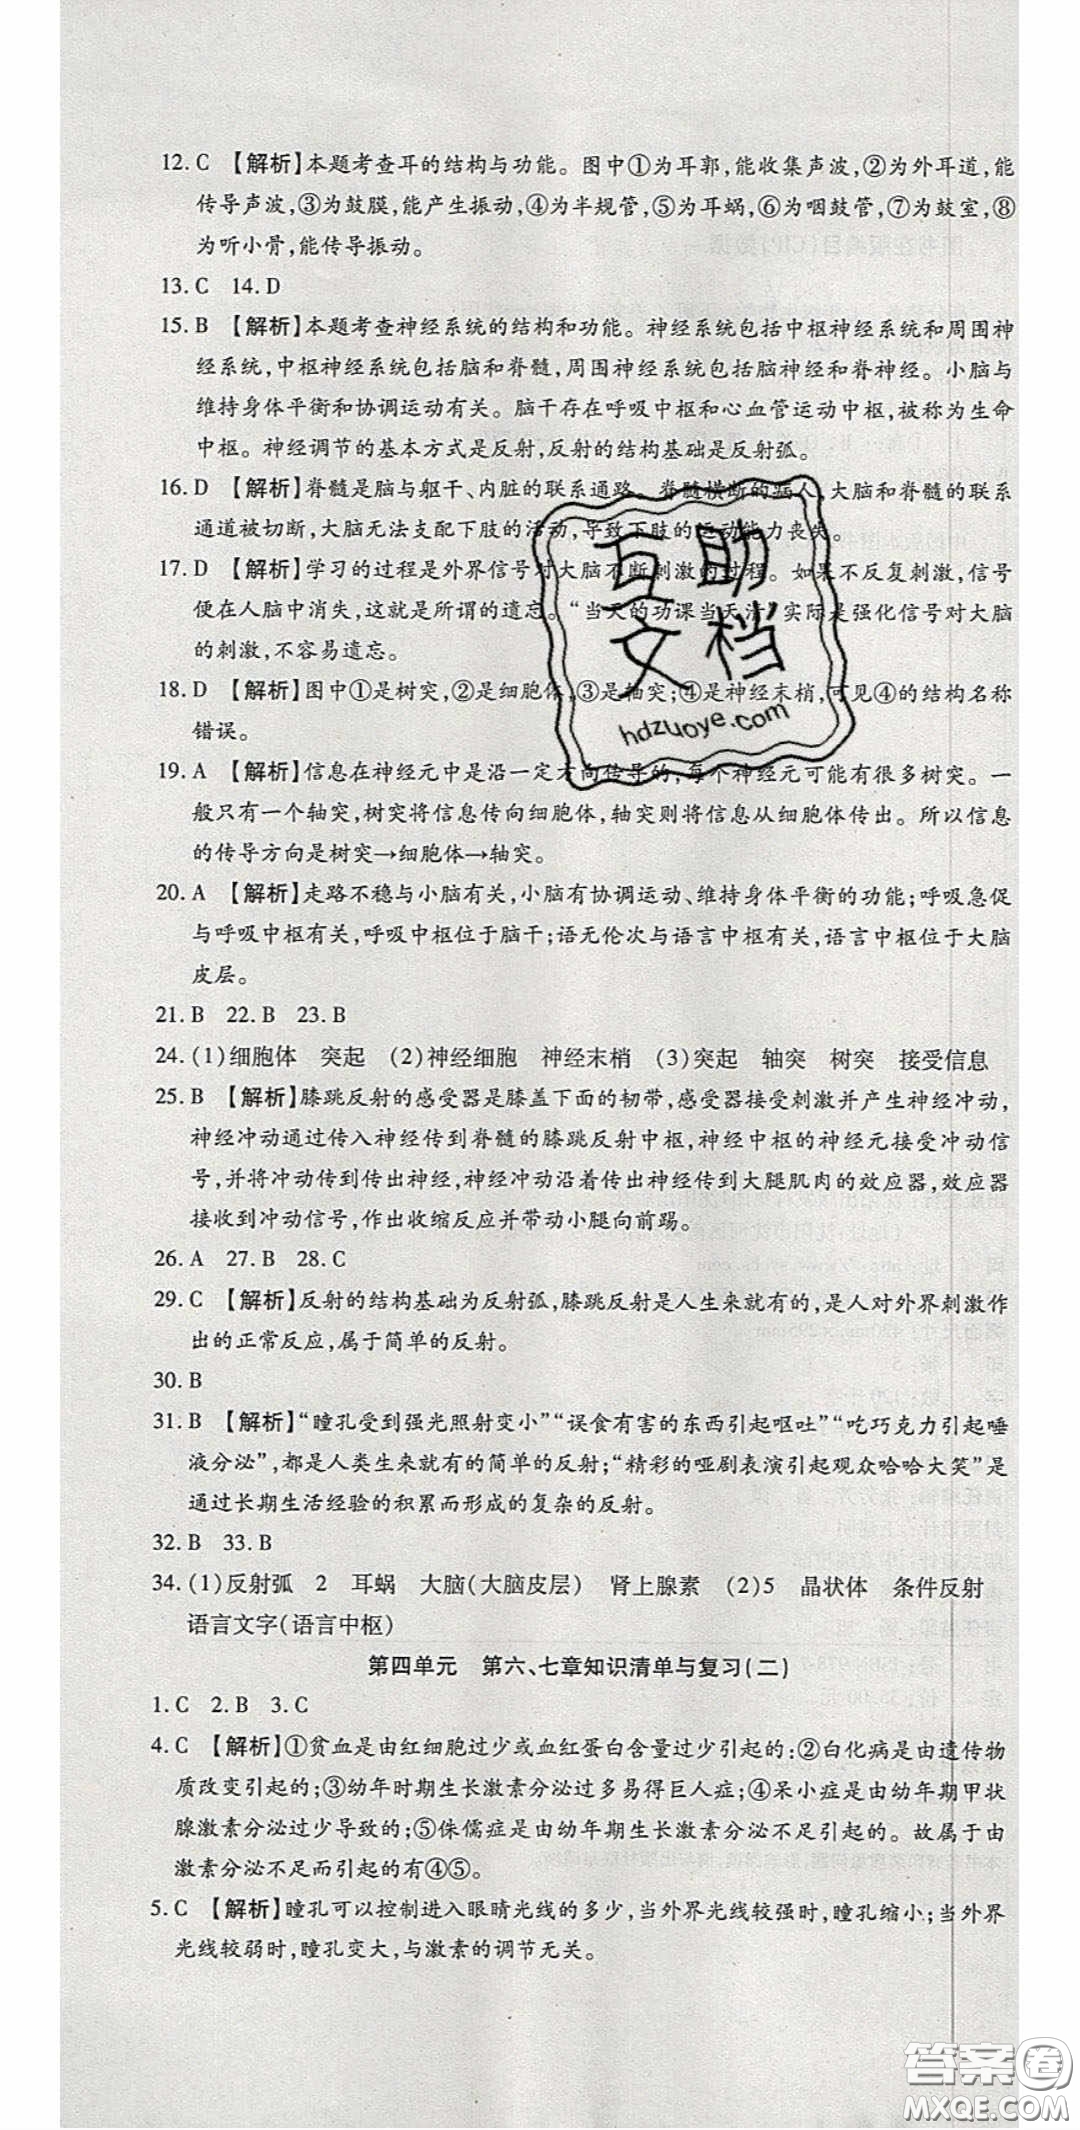 12. C 【解析】本题考查耳的结构与功能。图中①为耳郭,能收集声波,②为外耳道,能
传导声波,③为鼓膜,能产生振动,④为半规管,⑤为耳蜗,⑥为咽鼓管,⑦为鼓室,⑧
为听小骨,能传导振动。
13. C 14. D
15. B 【解析】本题考查神经系统的结构和功能。神经系统包括中枢神经系统和周围神
经系统,中枢神经系统包括脑和脊髓,周围神经系统包括脑神经和脊神经。小脑与
维持身体平衡和协调运动有关。脑干存在呼吸中枢和心血管运动中枢,被称为生命
中枢。神经调节的基本方式是反射,反射的结构基础是反射弧。
16. D 【解析】脊髓是脑与躯干、内脏的联系通路。脊髓横断的病人,大脑和脊髓的联系
通道被切断,大脑无法支配下肢的活动,导致下肢的运动能力丧失。
17. D 【解析】学习的过程是外界信号对大脑不断刺激的过程。如果不反复刺激,信号
便在人脑中消失,这就是所谓的遗忘。“当天的功课当天清”实际是强化信号对大脑
的刺激,不容易遗忘。
18. D 【解析】图中①是树突,②是细胞体,③是轴突;④是神经末梢,可见④的结构名称
错误。
19. A 【解析】信息在神经元中是沿一定方向传导的,每个神经元可能有很多树突。一
般只有一个轴突,树突将信息传向细胞体,轴突则将信息从细胞体传出。所以信息
的传导方向是树突→细胞体→轴突。
20. A 【解析】走路不稳与小脑有关,小脑有协调运动、维持身体平衡的功能;呼吸急促
与呼吸中枢有关,呼吸中枢位于脑干;语无伦次与语言中枢有关,语言中枢位于大脑
皮层。
21. B 22. B 23. B
24. (1)细胞体 突起 (2)神经细胞 神经末梢 (3)突起 轴突 树突 接受信息
25. B 【解析】膝跳反射的感受器是膝盖下面的韧带,感受器接受刺激并产生神经冲动,
神经冲动通过传入神经传到脊髓的膝跳反射中枢,神经中枢的神经元接受冲动信
号,并将冲动传到传出神经,神经冲动沿着传出神经传到大腿肌肉的效应器,效应器
接收到冲动信号,作出收缩反应并带动小腿向前踢。
26. A 27. B 28. C
29. C 【解析】反射的结构基础为反射弧,膝跳反射是人生来就有的,是人对外界刺激作
出的正常反应,属于简单的反射。
30. B
31. B 【解析】“瞳孔受到强光照射变小”“误食有害的东西引起呕吐”“吃巧克力引起唾
液分泌”,都是人类生来就有的简单的反射;“精彩的哑剧表演引起观众哈哈大笑”是
通过长期生活经验的积累而形成的复杂的反射。
32. B 33. B
34. (1)反射弧 2 耳蜗 大脑(大脑皮层) 肾上腺素 (2)5 晶状体 条件反射
语言文字(语言中枢)
第四单元 第六、七章知识清单与复习(二)
1. C 2. B 3. C
4. C 【解析】①贫血是由红细胞过少或血红蛋白含量过少引起的;②白化病是由遗传物
质改变引起的;③幼年时期生长激素分泌过多易得巨人症;④呆小症是由幼年期甲状
腺激素分泌过少导致的;⑤侏儒症是由幼年期生长激素分泌不足引起的。故属于由
激素分泌不足而引起的有④⑤。
5. C 【解析】瞳孔可以控制进入眼睛光线的多少,当外界光线较强时,瞳孔缩小;当外界
光线较弱时,瞳孔变大,与激素的调节无关。
互助
文档
hdzuoye.com
答案圈
MXQE.COM